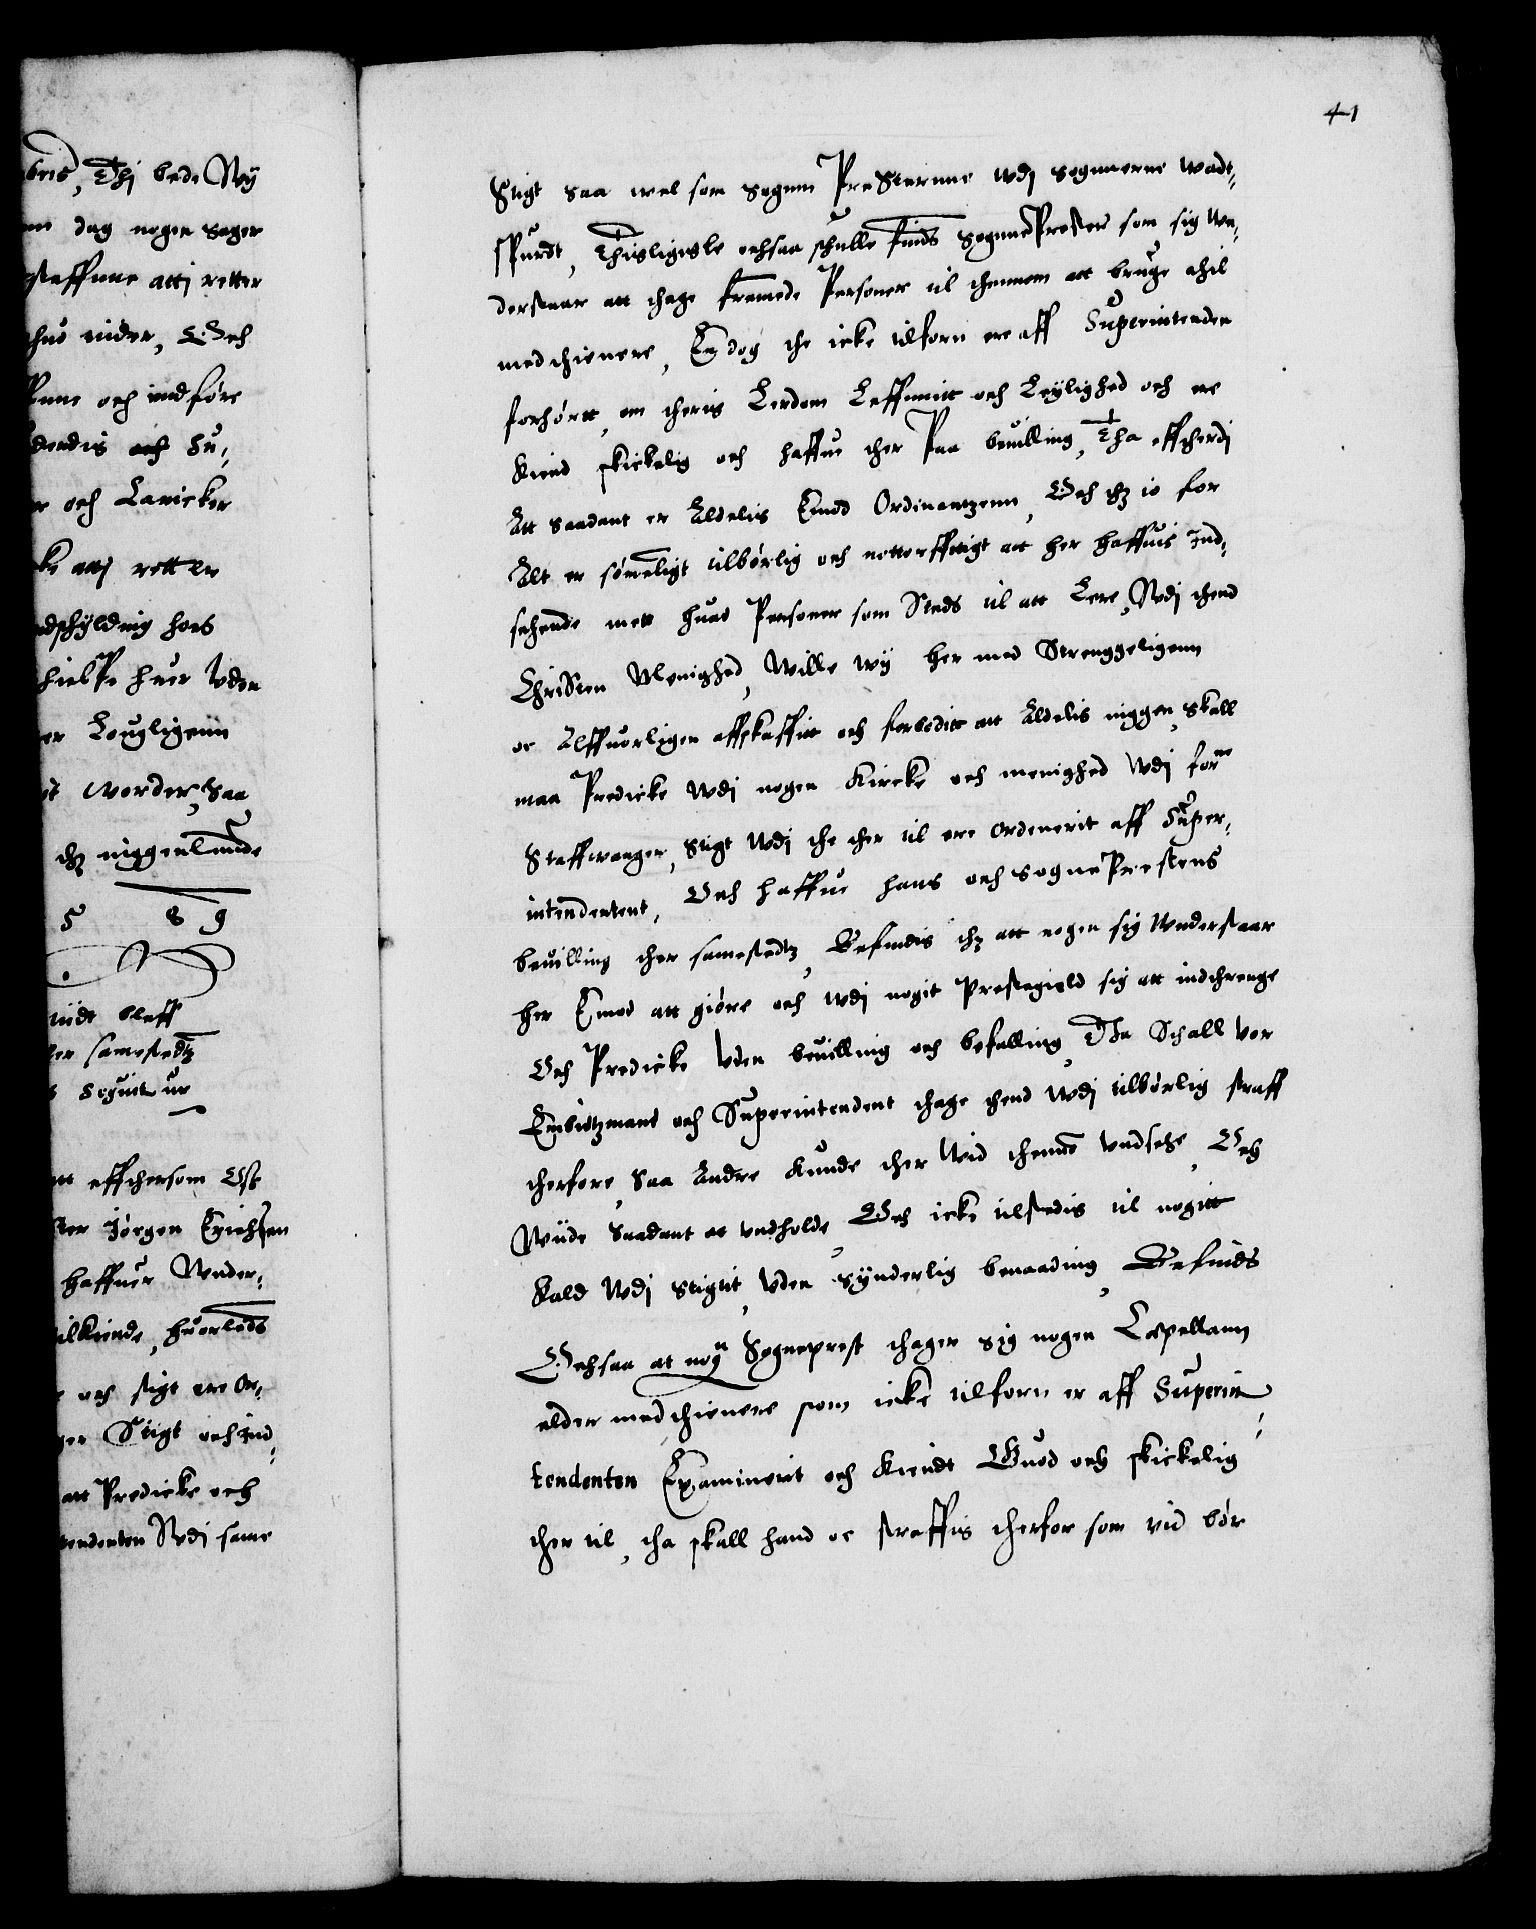 bris, Thj bede Wÿ
dag nogen sager
staffnne attj retter
hus nider, Och
och indføre
dendis och Su-
och Lauicker
attj retter
dschÿlding hoes
hielPe huer Vden
er Lougligenn
it worder, saa
dtz niggenlunde
5 89
bleff
samestedtz
Seguitur
att effthersom Ost
ter Jørgen Erichsen
haffuer Wnder-
tilkiende, huorledis
och stigt ere Or-
ger Stigt och Ind-
att Predicke och
tendenten Vdj same
41
Stigt saa wel som sogenn PreSternne wdj sognnerne wadt-
sPurdt, Thisligeste ochsaa schulle finds SognnePrester som sig wn-
derstaar att thage fremede Personer til thennem att bruge thil
medthienere, Endog the icke tilforn ere aff Superintenden
forhørtt, om theris Lerdom Leffnnitt och Leÿlighed och ere
Kiend skickelig och haffue ther Paa beuilling, Tha efftherdj
Att saadant er Aldelis Emod Ordinantzenn, Och thz io for
Alt er sømeligt tilbørlig och nottorfftigt att her haffuis Ind-
seende mett huad Personer som Steds til att Lere, Vdj thend
ChriSten Menighed, Wille wÿ her med Strenggeligenn
oc Alffuorligen affskaffitt och forboditt att Aldelis niggen, skall
maa Predicke wdj nogen Kircke och menighed Vdj forne
Staffwanger Stigt Wdj the ther til ere ordenerit aff Super-
intendentent, Och haffue hans och SognePrestens
beuilling ther samestedtz, Befindis thz att nogen sig Wnderstaar
her Emod att giøre och wdj nogit Prestegield sig att indthrenge
Och Predicke Vden beuilling och befalling, Tha Schall vor
Embidtzmand och Superintendent thage thend Wdj tilbørlig straff
therfore, Saa Andre kunde ther Wid thennd Vndsehe, Och
Wiide Saadant at vndholde, Och icke tilstedis til nogitt
Kald Wdj Stigtit, Vden Sÿnderlig benaading, Befinds
Ochsaa at nogn Sogneprest thager sig nogen Capellann
elder medthienere som icke tilforn er aff Superin-
tendenten Examinerit och Kiendt Guod och skickelig
ther til, tha skall hand oc straffis therfor som vid bør